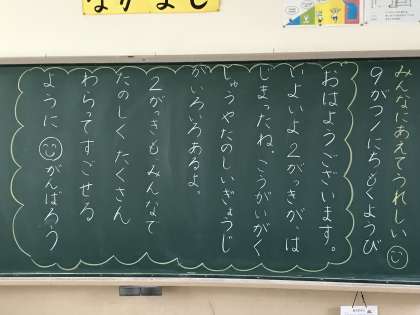 なかよし
みんなにあえてうれしい
9がつ1にちもくようび
おはようございます。
いよいよ2がっきが、は
じまったね。こうがいがく
しゅうやたのしいぎょうじ
がいろいろあるよ。
2がっきもみんなで
たのしくたくさん
わらってすごせる
ように がんばろう